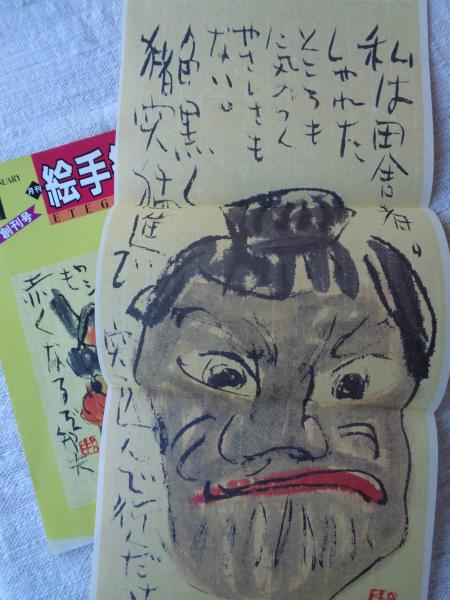 私は田舎者。
しゃれた
ところも
に気がつく
やさしさも
ない。
色黒く
猪突猛進で 突込んで
NUARY
月刊
絵手
ETEG
創刊号
赤くなるぞ